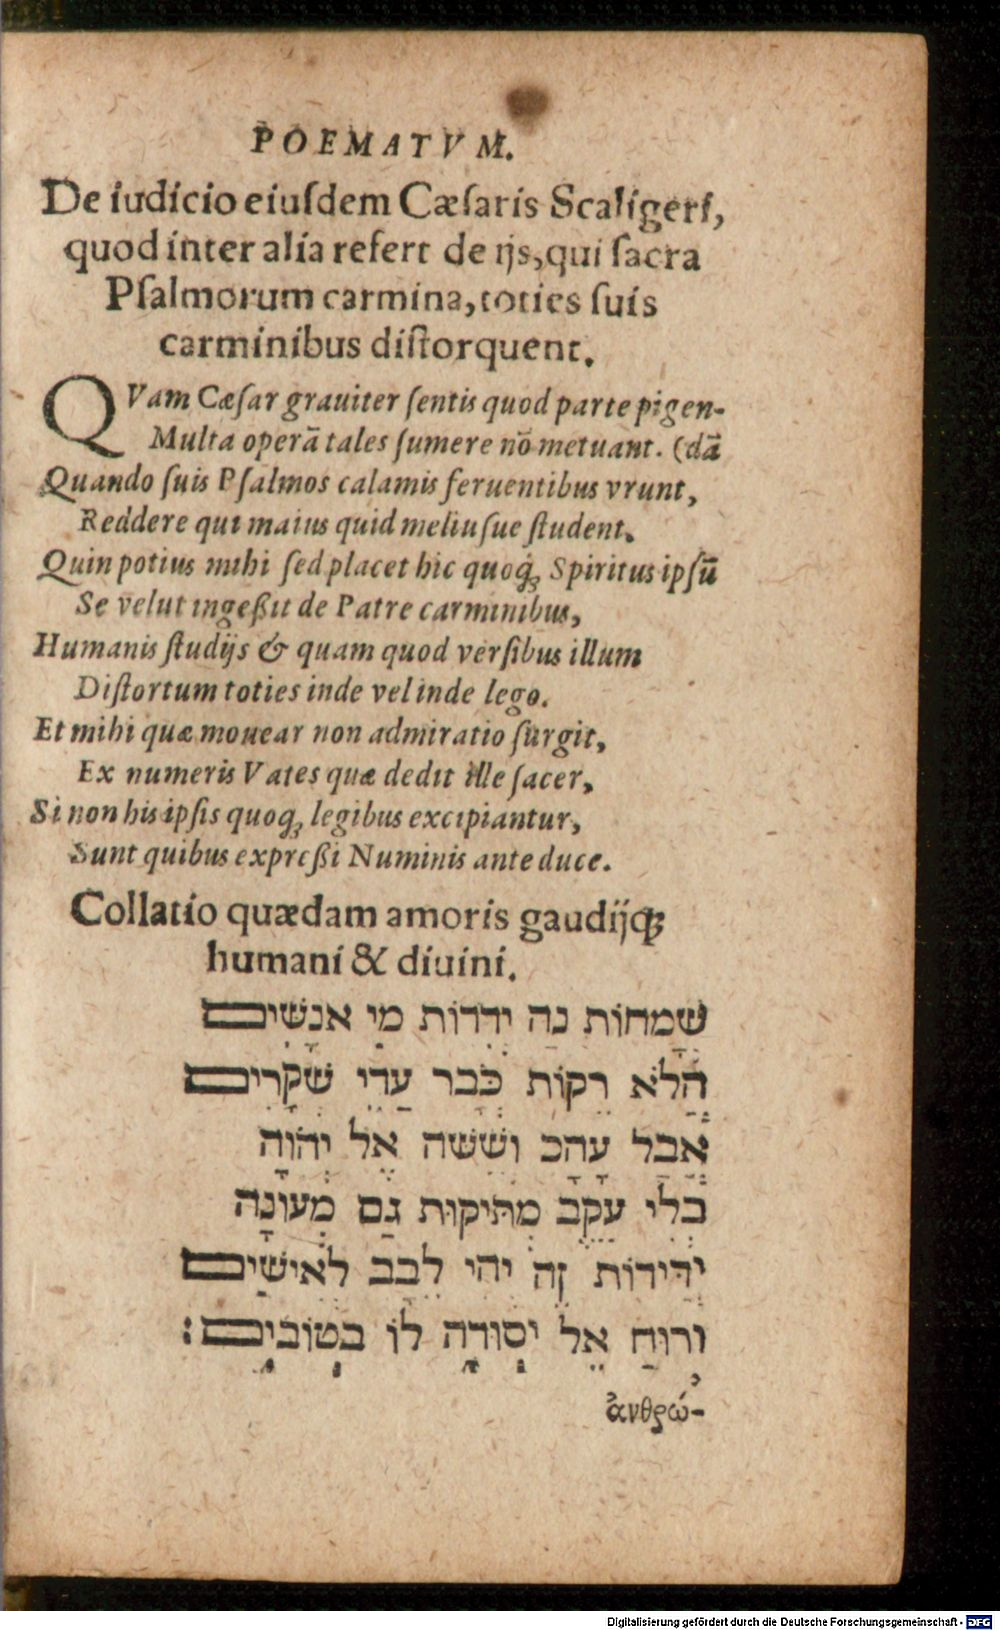 POEMATVM.
De iudicio eiuſdem Cæſaris Scaligeri,
quod inter alia refert de ijs, qui ſacra
Pſalmorum carmina, toties ſuis
carminibus diſtorquent.
QVam Cæſar grauiter ſentis quod parte pigen-
Multa operā tales ſumere nō metuant. (dā
Quando ſuis Pſalmos calamis feruentibus vrunt,
Reddere qui maius quid meliuſue ſtudent.
Quin potius mihi ſed placet hic quoq; Spiritus ipſū
Se velut ingeßit de Patre carminibus,
Humanis ſtudijs & quam quod verſibus illum
Diſtortum toties inde vel inde lego.
Et mihi quæ mouear non admiratio ſurgit,
Ex numeris Vates quæ dedit ille ſacer,
Si non his ipſis quoq; legibus excipiantur,
Sunt quibus expreßi Numinis ante duce.
Collatio quædam amoris gaudijq;
humani & diuini.
שָׂמַחוֹת נַה יְדִדוֹת מִי אנָשִׁים
הֲלֹא רֵקוֹת כְּבָר עֲדֵי שְׁקָרִים
אֲבָל וְשָׂשָׂה אֶל יְהֹוָה
בְלִי עֵקֶב מְתִיקוּת גַם מְעוֹנָה
יְדִידוֹת זֶה יְהִי לֵבָב לְאִישִׁים
וְרוּחַ אֵל יְסוֹדָה לוֹ בְטוֹבִים׃
ἀνθρώ-
Digitalisierung gefördert durch die Deutsche Forschungsgemeinschaft - DFG